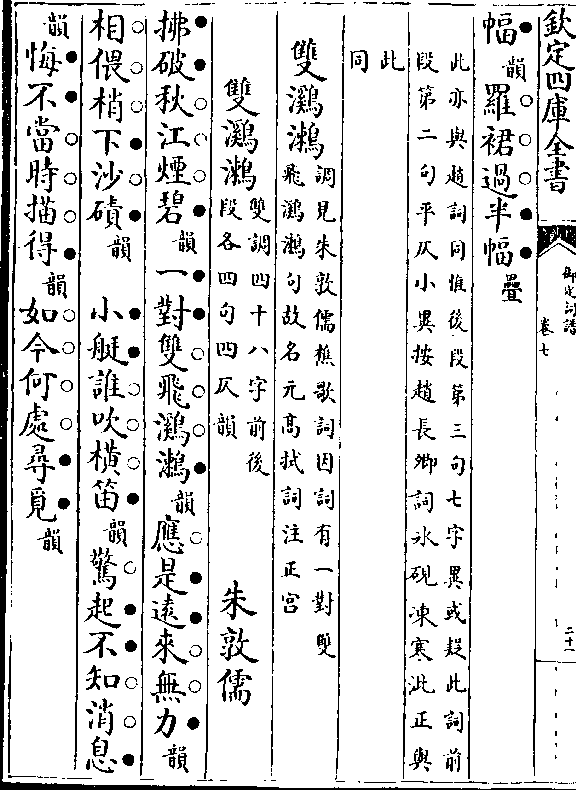 欽定四庫全書
御定詞譜
卷七
二十一
幅韻羅裙過半幅疊
此亦與趙詞同惟後段第三句七字異或疑此詞前
段第二句平仄小異按趙長卿詞氷硯凍寒此正與
此
同
雙鸂鶒調見朱敦儒樵歌詞因詞有一對雙
飛鸂鶒句故名元高拭詞注正宫
雙鸂鶒雙調四十八字前後
段各四句四仄韻
朱敦儒
拂破秋江煙碧韻一對雙飛鸂鶒韻應是遠來無力韻
相偎梢下沙磧韻 小艇誰吹橫笛韻驚起不知消息
韻悔不當時描得韻如今何處尋覓韻